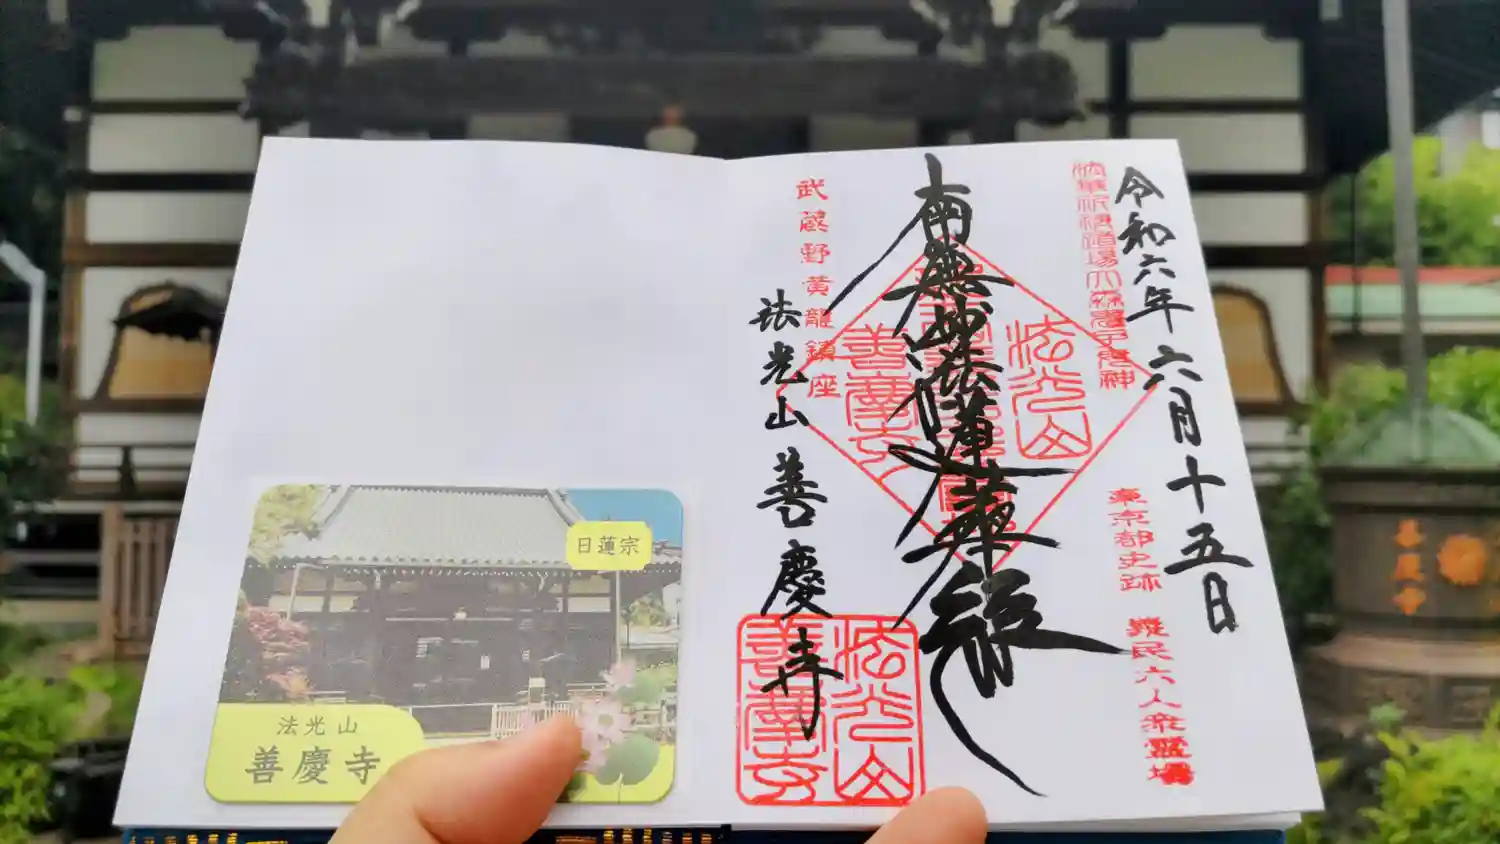 令和六年六月十五日
東京都史跡 義民六人衆霊場
南無妙法蓮華経
法光山
善慶寺
武蔵野黄龍鎮座
法光山 善慶寺
法光山
善慶寺
日蓮宗
法光山
善慶寺